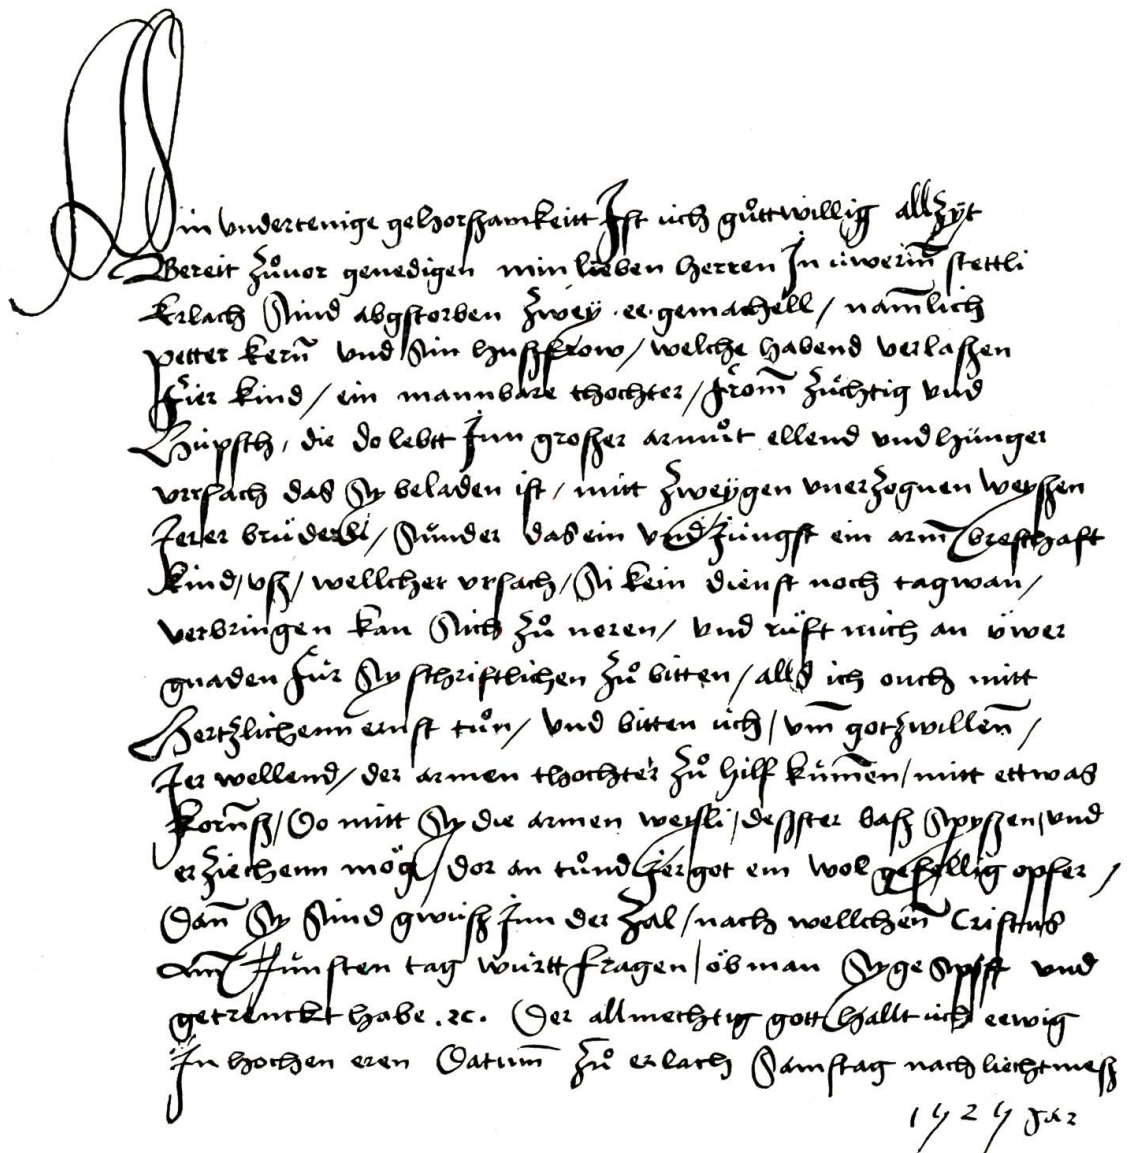 Min vndertenige gehorszamkeitt Jst üch gůttwillig allzÿt
Bereit zůuor genedigen min lieben herren Jn üwerm̄ stettli
Erlach Sind abgstorben zwey ee gemachell / nam̄lich
petter kern̄ vnd sin huszfrow / welche habend verlaszen
Fier kind / ein mannbare thochter / from̄ züchtig vnd
Hüpsch, die do lebtt Jnn groszer armůt ellend vnd hünger
vrsach das Sy beladen ist / mitt zweÿgen vnerzognen weyszen
Jerer brüderli / Sünder das ein vnd Jüngst ein arm̄ bresthaft
kind / vsz / wellcher vrsach / Si kein dienst noch tagwan /
verbringen kan Sich zů neren / vnd rüft mich an üwer
gnaden für Sy schriftlichen zů bitten / alls ich ouch mitt
Hertzlichenn ernst tůn / vnd bitten üch / vm̄ gotzwillen̄ /
Jer wellend / der armen thochter zů hilf kům̄en / mitt ettwas
korn̄sz / Do mitt Sy die armen weysli / desster basz Spyszen / vnd
erziechenn mög / dor an tůnd Jer got ein wol gefellig opfer /
Dan̄ Sy Sind gwüsz Jnn der zal / nach wellchen̄ Cristus
Am̄ Jünsten tag württ fragen / öb man Sy gespyst vnd
getrenckt habe .ꝛc. Der allmechtig gott hallt üch eewig
Jn hochen eren Datum̄ zů erlach Samstag nach liechtmesz
1525 Jar